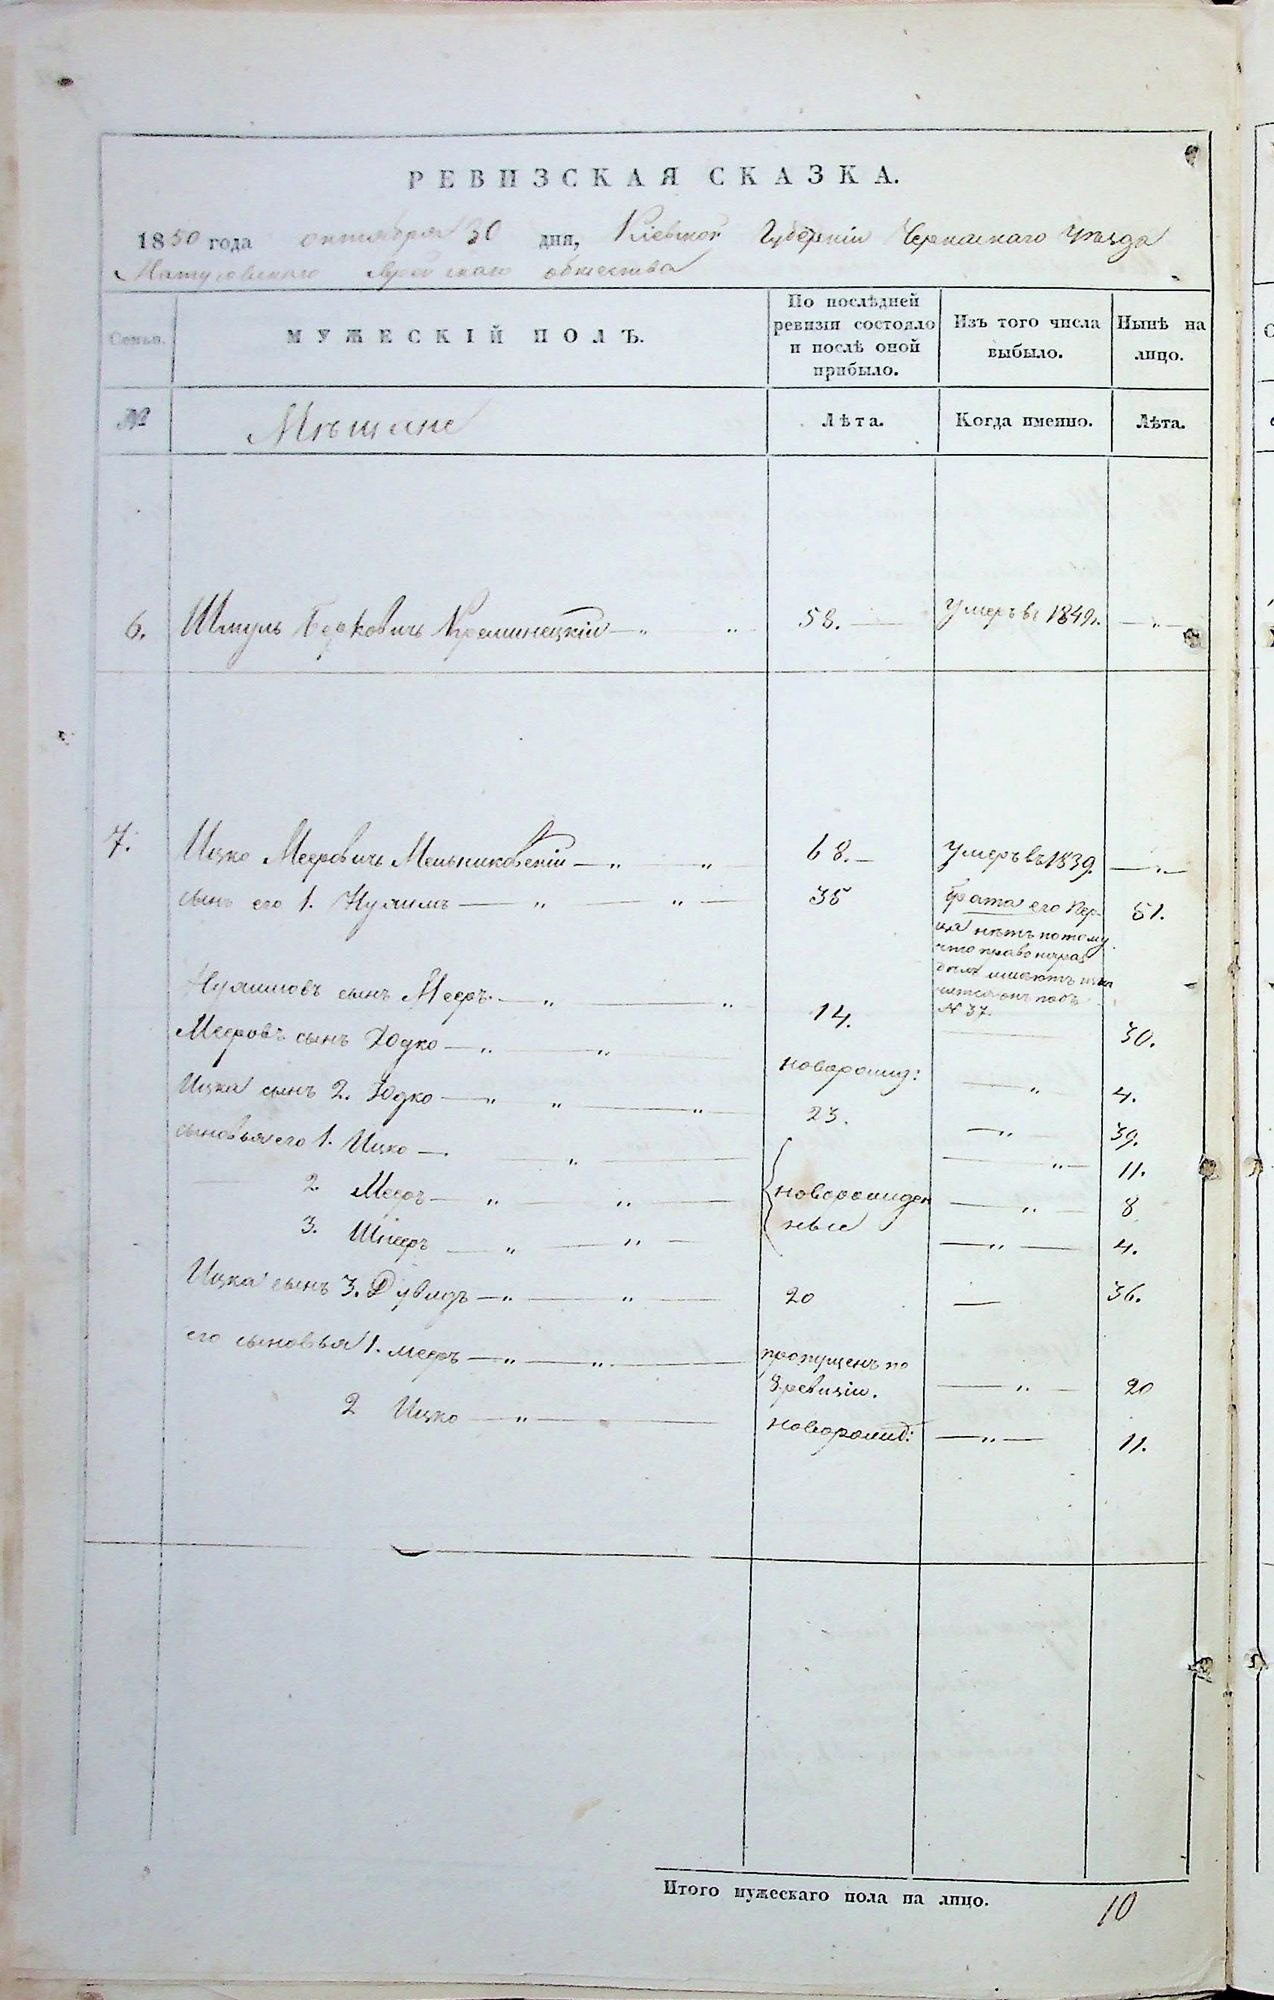 РЕВИЗСКАЯ СКАЗКА.
1850 года октября 30 дня, Кіевской Губерніи Черкаскаго Уѣзда
Матусовскаго Еврейскаго общества
Семья. МУЖЕСКІЙ ПОЛЪ. По послѣдней ревизіи состояло и послѣ оной прибыло. Изъ того числа выбыло. Нынѣ на лицо.
№ Мѣщане Лѣта. Когда именно. Лѣта.
6. Шмуль Берковичъ Креминецкіи — „ „ 58. — Умеръ въ 1849г. — „ —
7. Ицко Мееровичъ Мельниковскіи — „ — „ 68. — Умеръ въ 1839. — „ —
сынъ его 1. Нухимъ — „ — „ — 35 брата его Бер- 51.
ця нѣтъ потому
что право
дила имеютъ
под
№ 37.
Нухимовъ сынъ Мееръ — „ — „ 14. — 30.
Мееровъ сынъ Юдко — „ — „ новорожд: — „ 4.
Ицка сынъ 2. Юдко — „ „ — „ — 23. — „ — 39.
сыновья его 1. Ицко — „ — новорожден — „ — 11.
2. Мееръ — „ — „ — ные — „ — 8
3. Шнееръ — „ — „ — — „ — 4.
Ицка сынъ 3. Дувидъ — „ — „ — 20 — 36.
его сыновья 1. Мееръ — „ — „ — пропущенъ по — „ — 20
ревизіи.
2 Ицко — „ — новорожд: — „ — 11.
Итого мужескаго пола на лицо. 10